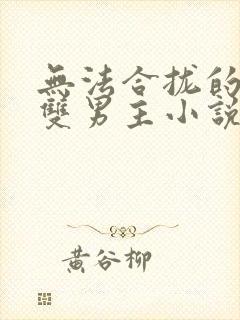 無法合拢的
雙男主小說
黄谷柳